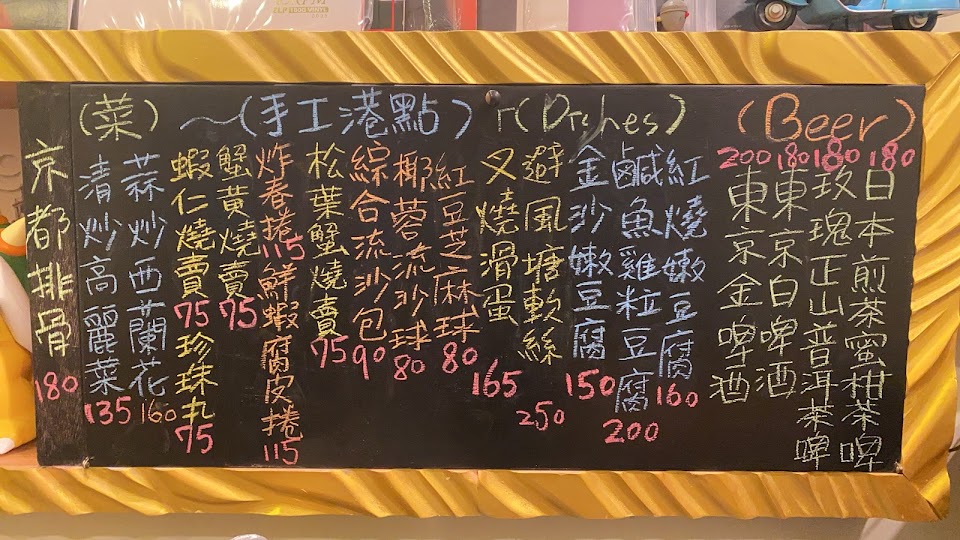 (Beer)
日本煎茶蜜柑茶啤 180
玫瑰正山普洱茶啤 180
東京白啤酒 180
東京金啤酒 200
r(Dishes)
紅燒嫩豆腐 160
鹹魚雞粒豆腐 200
金沙嫩豆腐 150
避風塘軟絲 250
叉燒滑蛋 165
~(手工港點)
紅豆芝麻球 80
椰蓉流沙球 80
綜合流沙包 90
松葉蟹燒賣 75
炸春捲 115
鮮蝦腐皮捲 115
蟹黃燒賣 75
蝦仁燒賣 75
珍珠丸 75
(菜)
蒜炒西蘭花 160
清炒高麗菜 135
京都排骨 180